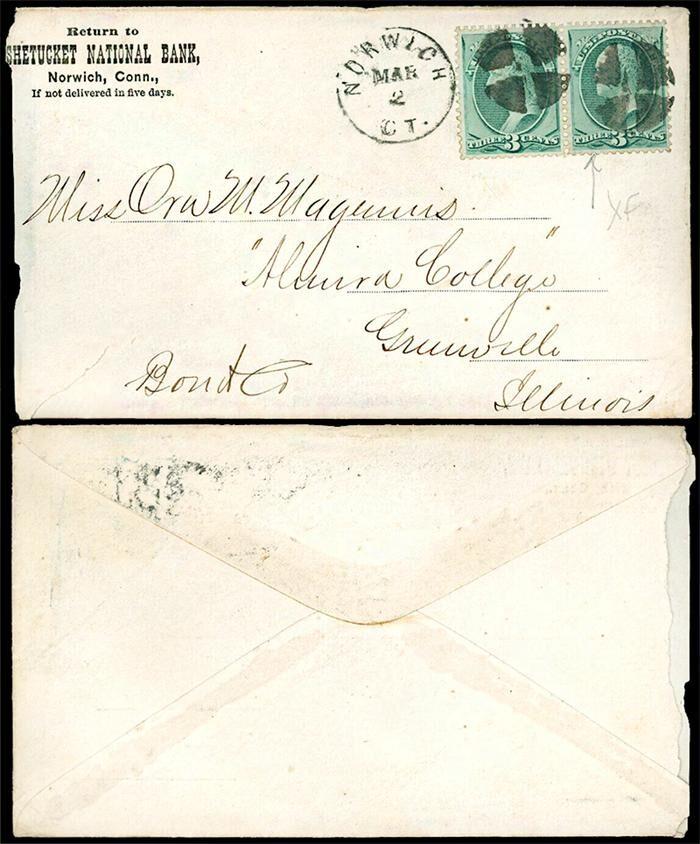 Return to
SHETUCKET NATIONAL BANK,
Norwich, Conn.,
If not delivered in five days.
NORWICH
MAR
2
CT.
U.S. POSTAGE
THREE 3 CENTS
THREE 3 CENTS
XF
Miss Ora M. Magennis
"Almira College"
Greenville
Bond Co
Illinois